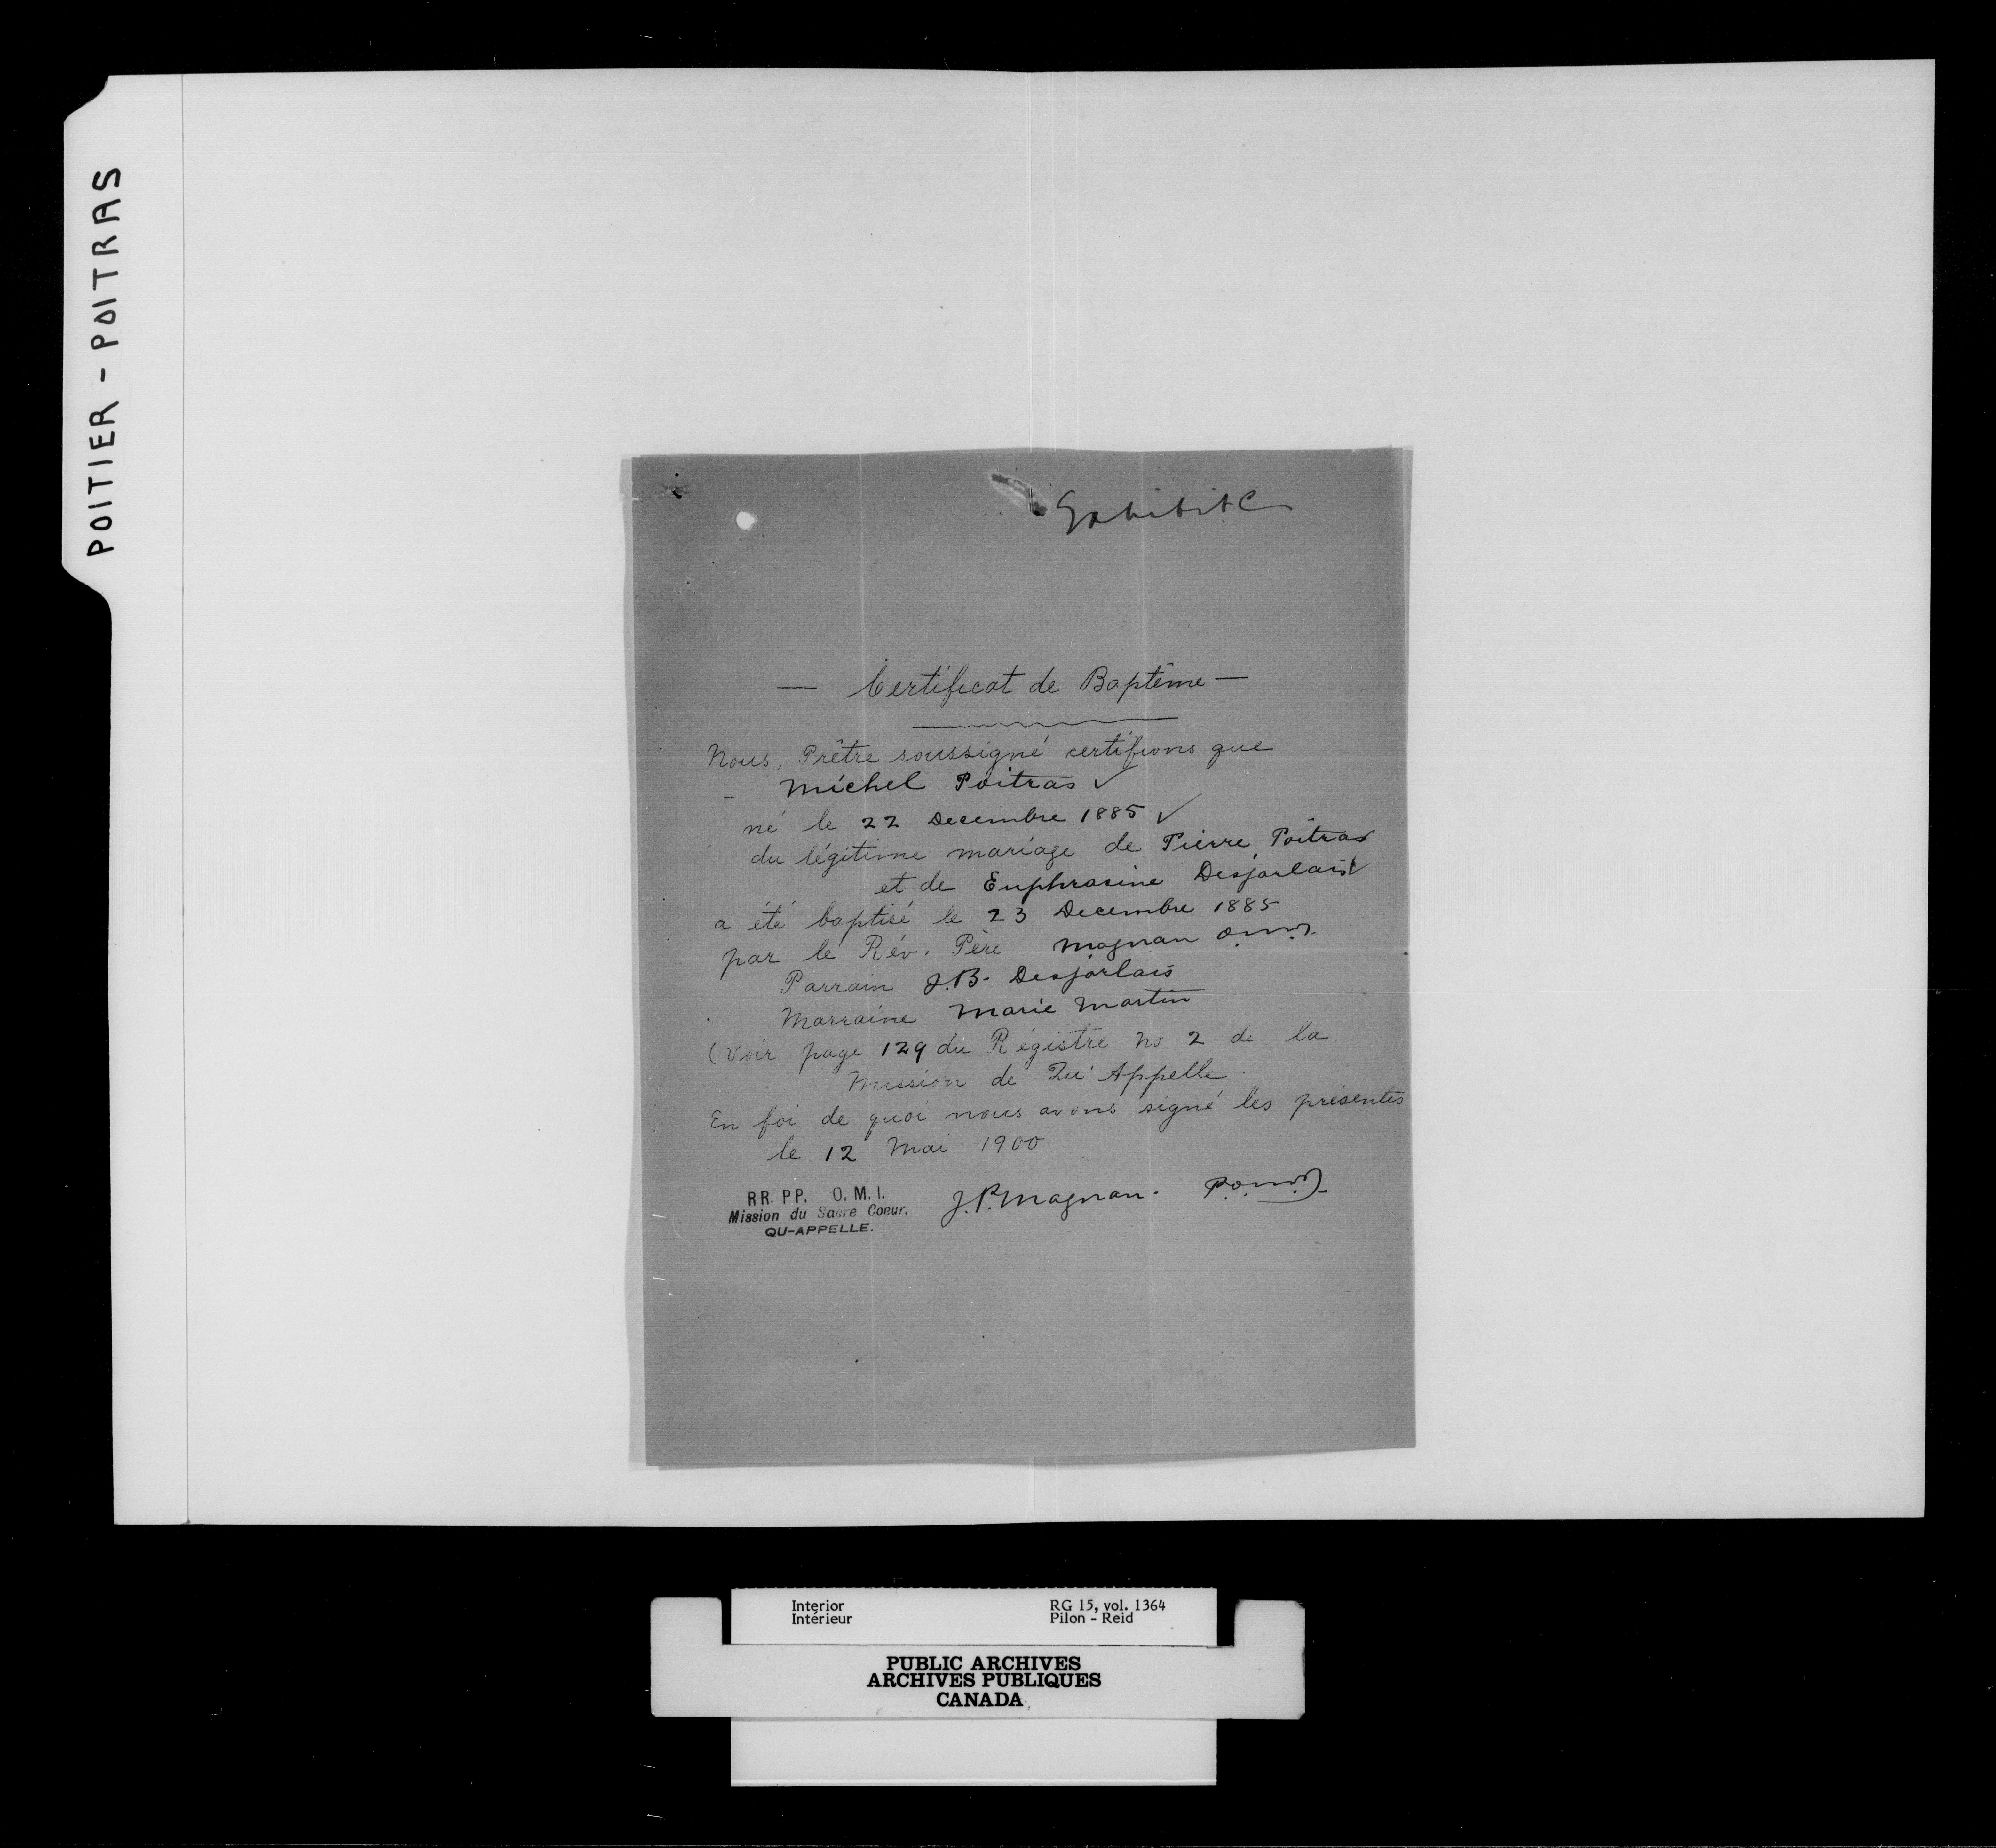 POITIER - POITRAS
Exhibit C
— Certificat de Baptême —
Nous, Prêtre soussigné certifions que
- Michel Poitras ✓
né le 22 Decembre 1885 ✓
du légitime mariage de Pierre Poitras
et de Euphrasine Desjarlais ✓
a été baptisé le 23 Decembre 1885
par le Rév. Père Magnan o.m.i.
Parrain J.B. Desjarlais
Marraine Marie Martin
(Voir page 129 du Régistre No 2 de la
Mission de Qu'Appelle
En foi de quoi nous avons signé les présentes
le 12 Mai 1900
RR. PP. O. M. I.
Mission du Sacre Coeur,
QU-APPELLE.
J.P. Magnan. P.o.m.i.
Interior RG 15, vol. 1364
Intérieur Pilon - Reid
PUBLIC ARCHIVES
ARCHIVES PUBLIQUES
CANADA